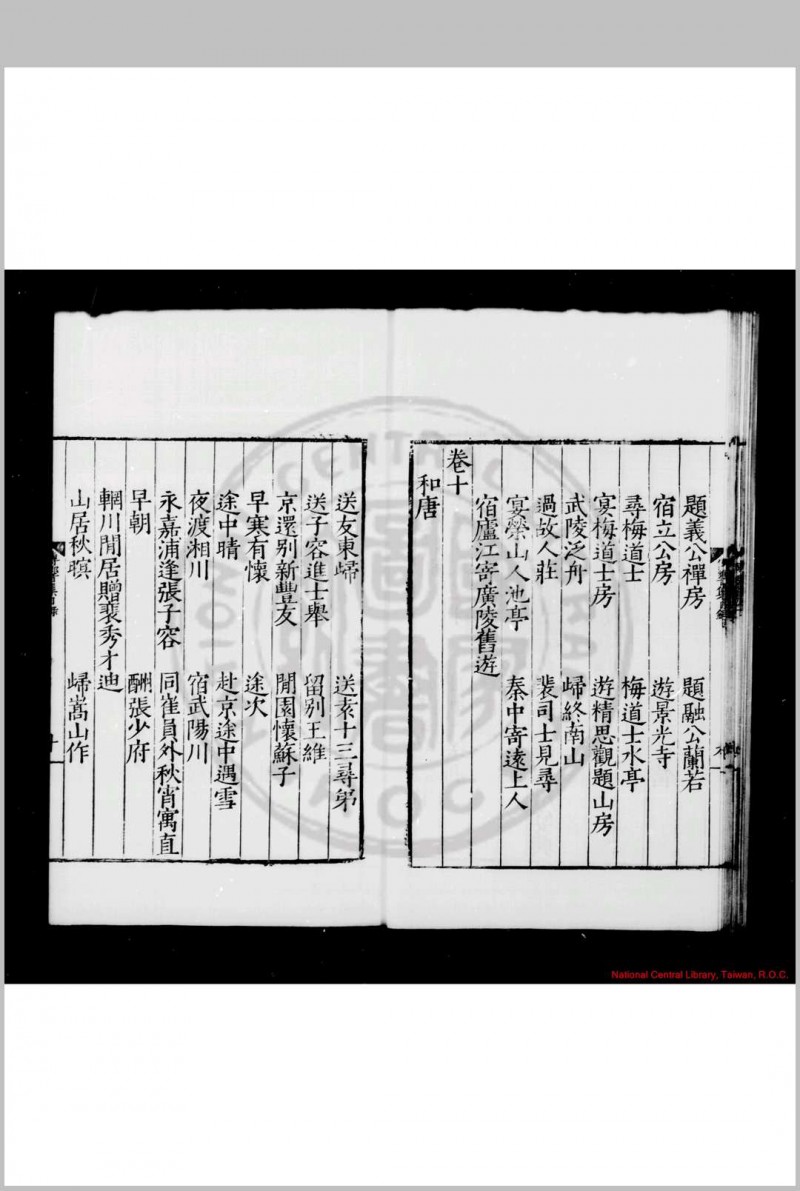 題義公禪房　題融公蘭若
宿立公房　遊景光寺
尋梅道士　梅道士水亭
宴梅道士房　遊精思觀題山房
武陵泛舟　歸終南山
過故人莊　裴司士見尋
宴榮山人池亭　秦中寄遠上人
宿廬江寄廣陵舊遊
卷十
和唐
送友東歸　送袁十三尋弟
送子容進士舉　留別王維
京還别新豐友　閒園懷蘇子
早寒有懷　途次
途中晴　赴京途中遇雪
夜渡湘川　宿武陽川
永嘉浦逢張子容　同崔員外秋宵寓直
早朝　酬張少府
輞川閒居贈裴秀才迪
山居秋暝　歸嵩山作
National Central Library, Taiwan, R.O.C.